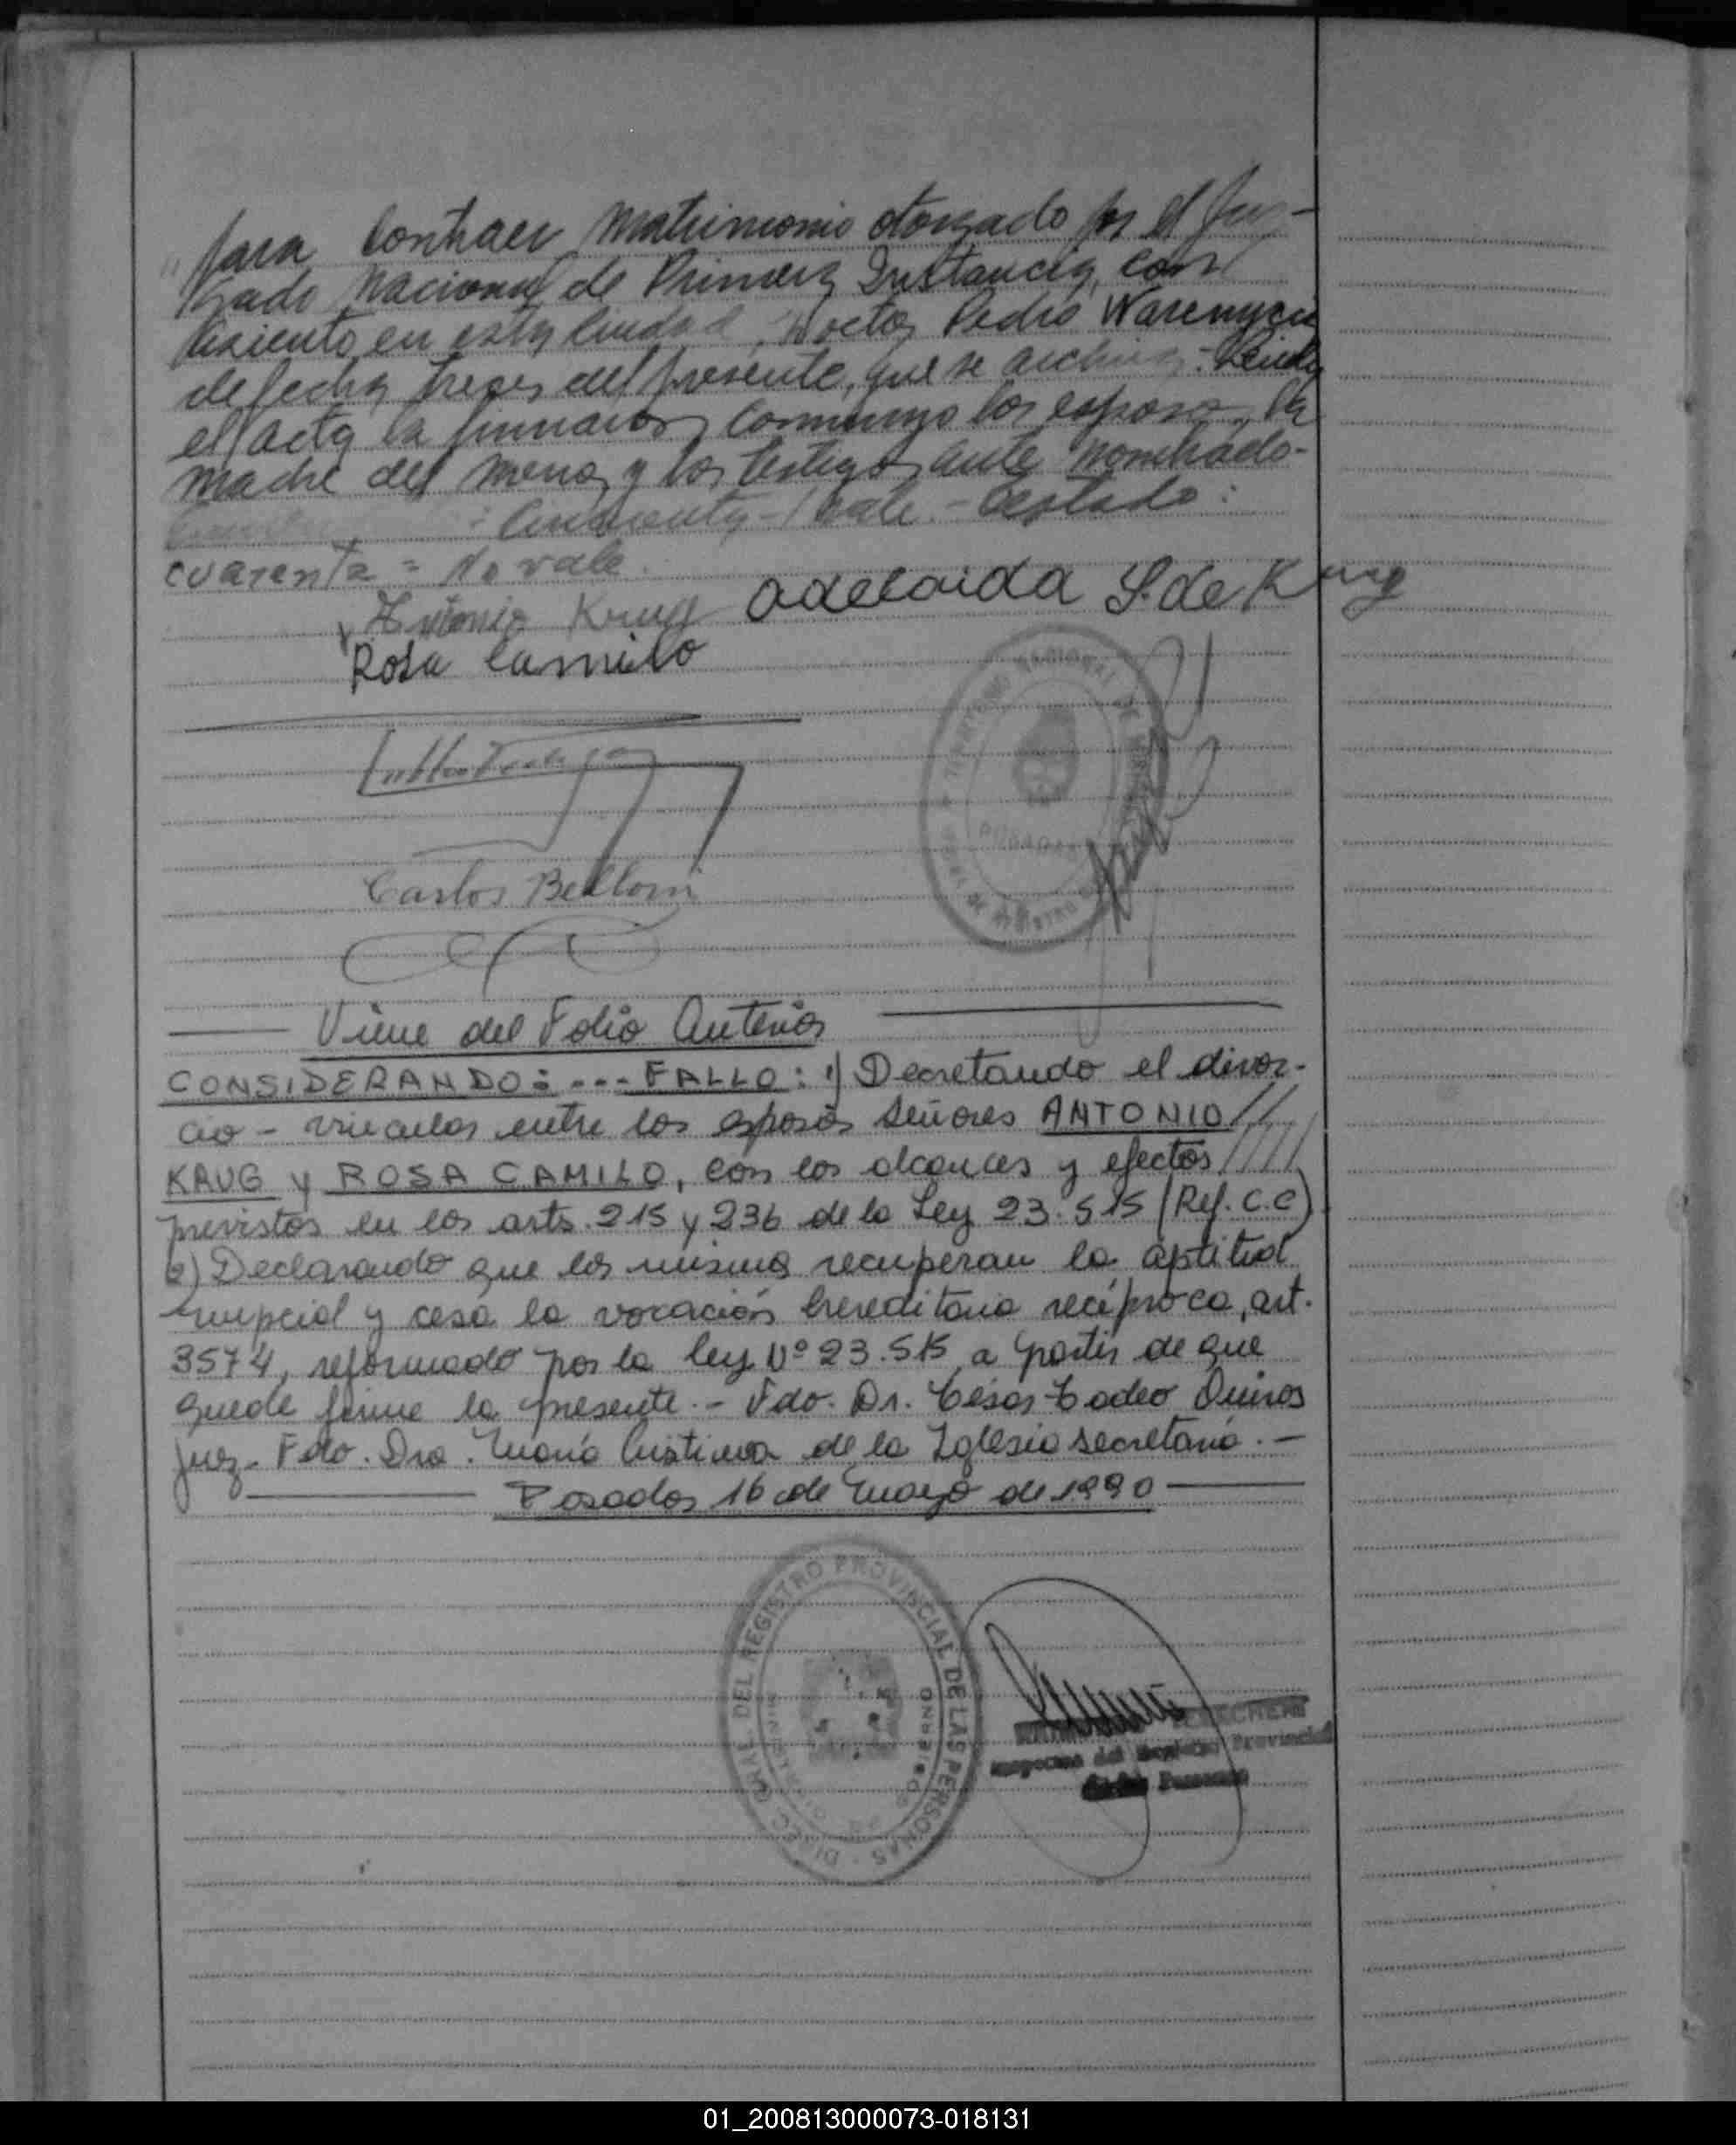 para contraer matrimonio otorgado por el Juz-
gado Nacional de Primera Instancia, con
asiento en esta ciudad, Doctor Pedro Warenycia
de fecha trece del presente, que se archiva.- Leida
el acta la firmaron conmigo los esposos, la
madre del menor y los testigos ante nombrado-
: cincuenta - Vale. - Testado:
cuarenta = No vale.
Antonio Krug adelaida S. de Krug
Rosa Camilo
TERRITORIO NACIONAL DE
POSADAS
Carlos Belloni
Viene del Folio Anterior
CONSIDERANDO: --- FALLO: 1) Decretando el divor-
cio - vincular entre los esposos señores ANTONIO //
KRUG y ROSA CAMILO, con los alcances y efectos ////
previstos en los arts. 215 y 236 de la Ley 23.515 (Ref. C.C)
2) Declarando que los mismos recuperan la aptitud
nupcial y cesa la vocación hereditaria recíproca, art.
3574, reformado por la ley Nº 23.515, a partir de que
quede firme la presente.- Fdo. Dr. César Tadeo Quiros
Juez- Fdo. Dra. María Cristina de la Iglesia secretaria.-
Posadas 16 de Mayo de 1990
DIREC. GRAL. DEL REGISTRO PROVINCIAL DE LAS PERSONAS
MINISTERIO DE GOBIERNO
del Registro Provincial
de las Personas
01_200813000073-018131